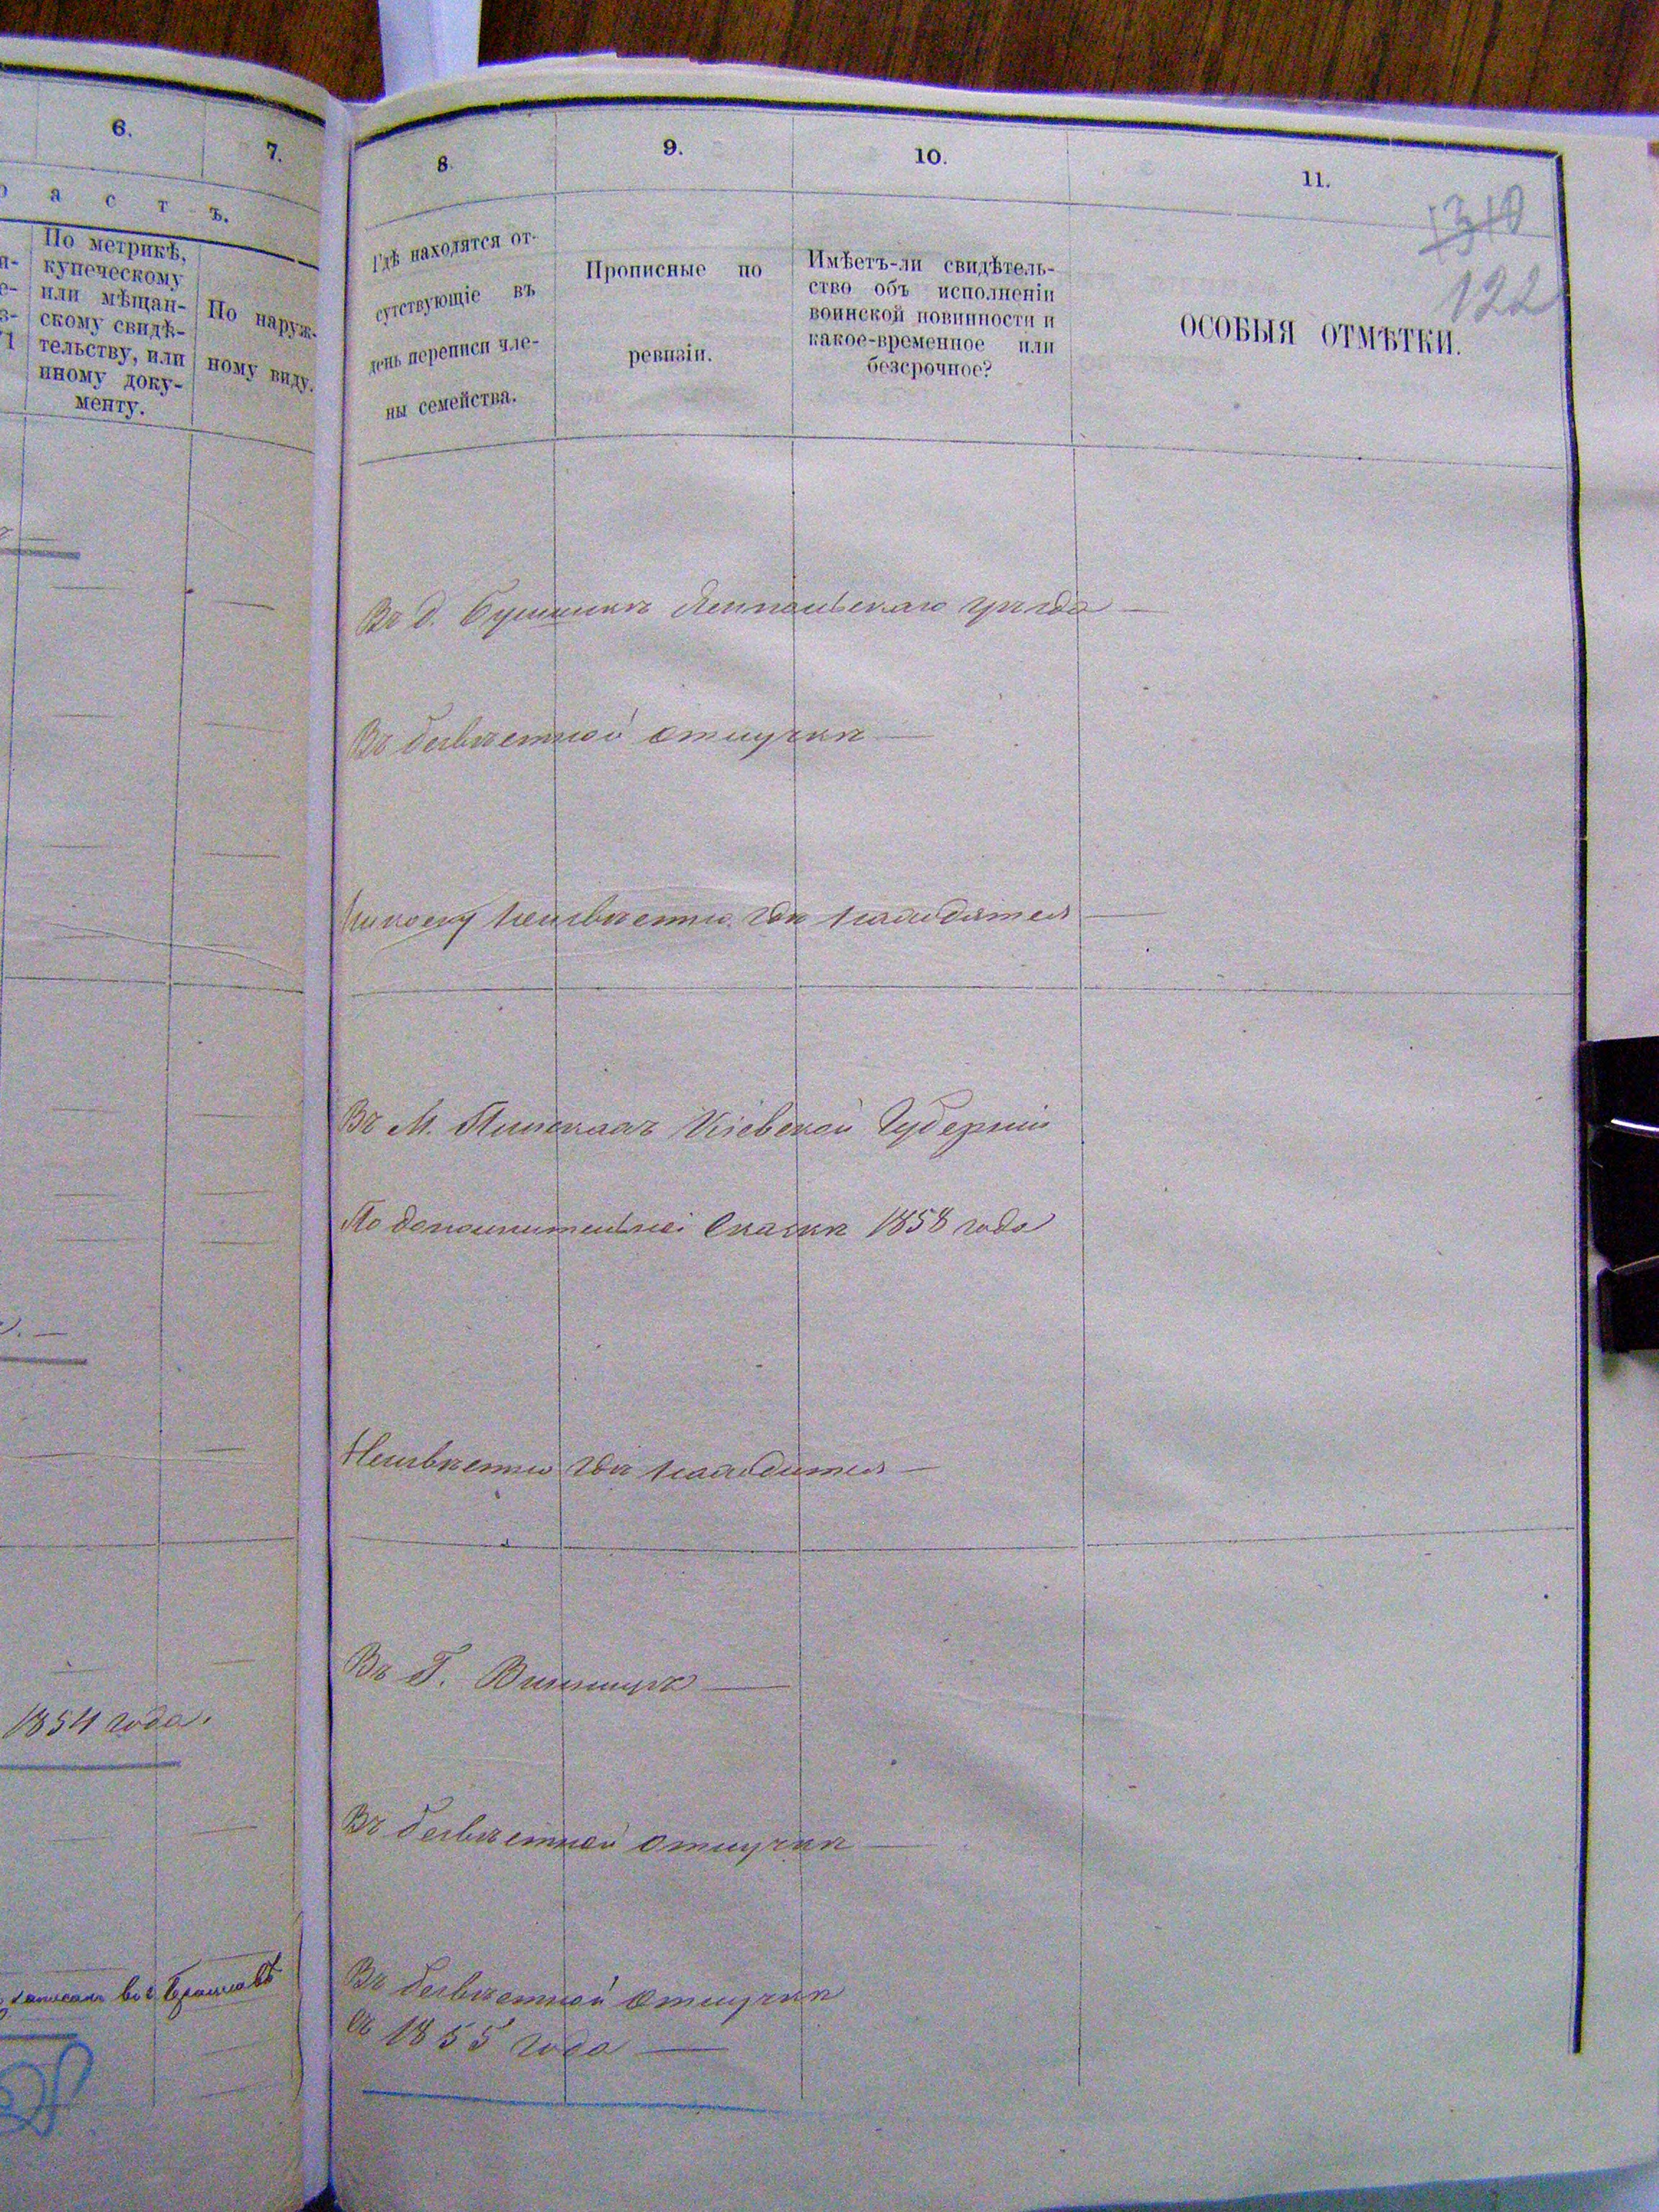 6.
7.
а с т ъ.
По метрикѣ,
купеческому
или мѣщан-
скому свидѣ-
тельству, или
иному доку-
менту.
По наруж-
ному виду.
1854 года.
8.
9.
10.
11.
1310
122
Гдѣ находятся от-
сутствующіе въ
день переписи чле-
ны семейства.
Прописные по
ревизіи.
Имѣетъ-ли свидѣтель-
ство объ исполненіи
воинской повинности и
какое-временное или
безсрочное?
ОСОБЫЯ ОТМѢТКИ.
Въ д. уѣзда
Въ безвѣстной отлучкѣ
неизвѣстно гдѣ находятся
Въ М. Кіевской Губерніи
По дополнительной Сказкѣ 1858 года
Неизвѣстно гдѣ находится
Въ Г. Винницѣ
Въ безвѣстной отлучкѣ
Въ безвѣстной отлучкѣ
съ 1855 года